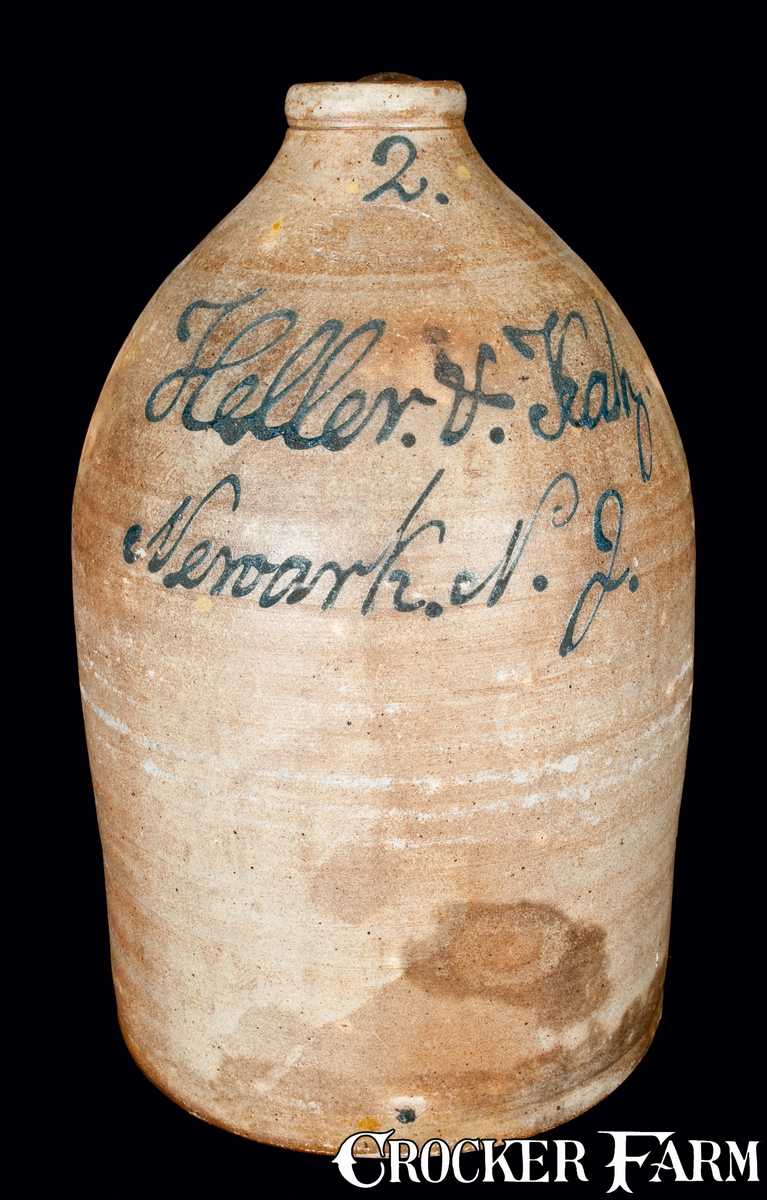 2.
Heller. &. Katz.
Newark. N. J.
CROCKER FARM